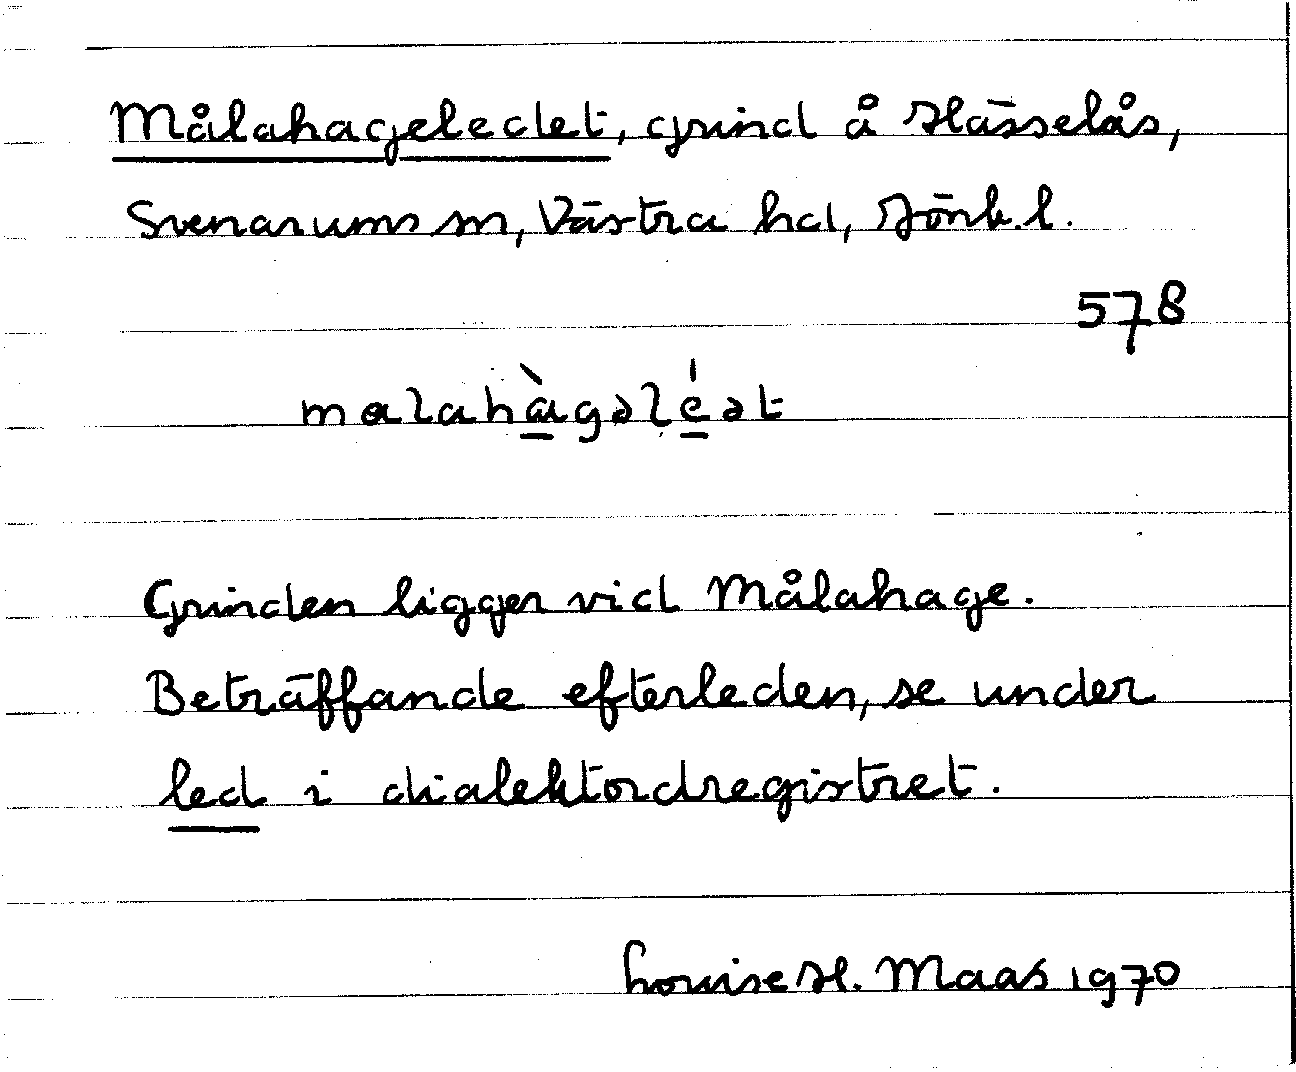 Målahageledet, grind å Hässelås,
Svenarums sn, Västra hd, Jönk. l.
578
malahàgəléət
Grinden ligger vid Målahage.
Beträffande efterleden, se under
led i dialektordregistret.
Louise H. Maas 1970